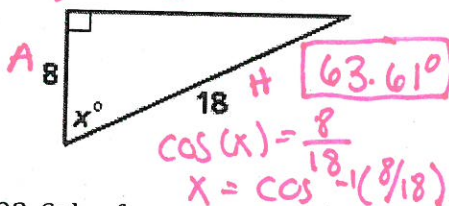 A 8
x°
18 H
63.61°
cos(x) = 8/18
x = cos⁻¹(8/18)